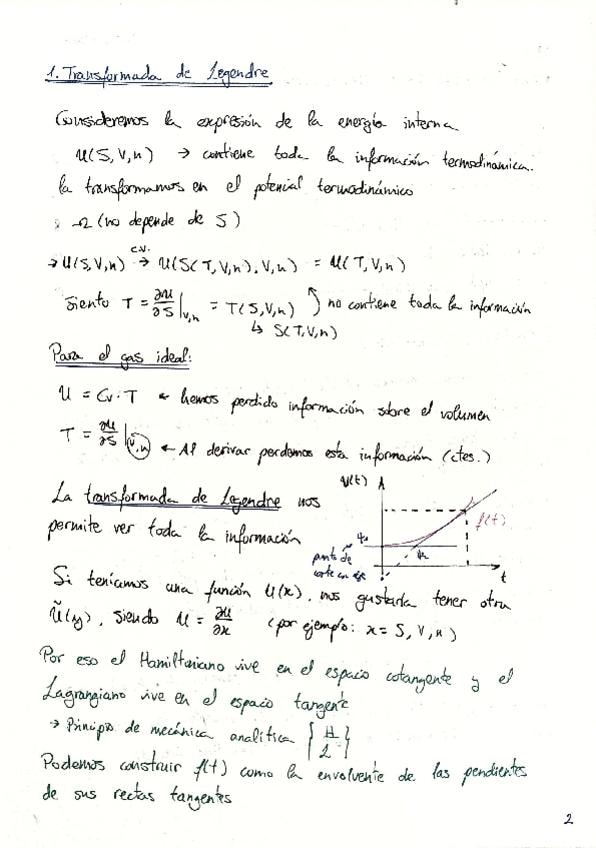 1. Transformada de Legendre
Consideremos la expresión de la energía interna
U(S,V,n) → contiene toda la información termodinámica.
la transformamos en el potencial termodinámico
Ω (no depende de S)
c.v.
→ U(S,V,n) → U(S(T,V,n),V,n) = U(T,V,n)
siento T = ∂U/∂S|V,n = T(S,V,n) no contiene toda la información
↳ S(T,V,n)
Para el gas ideal:
U = Cv·T ← hemos perdido información sobre el volumen
T = ∂U/∂S|V,n ← Al derivar perdemos esta información (ctes.)
La transformada de Legendre nos
permite ver toda la información
f(t)
punto de
corte en eje
t
Si teníamos una función U(x), nos gustaría tener otra
Ũ(y), siendo U = ∂U/∂x (por ejemplo: x = S, V, n)
Por eso el Hamiltoniano vive en el espacio cotangente y el
Lagrangiano vive en el espacio tangente
→ Principio de mecánica analítica
Podemos construir f(t) como la envolvente de las pendientes
de sus rectas tangentes
2